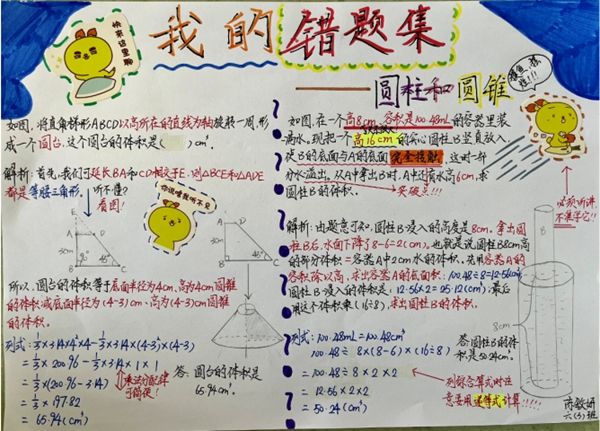 快来这里聊
我的错题集
——圆柱和圆锥
如图，将直角梯形ABCD以高所在的直线为轴旋转一周，形
成一个圆台。这个圆台的体积是（ ）cm³。
解析：首先，我们可延长BA和CD相交于E，则△BCE和△ADE
都是等腰三角形。听不懂？
看图！
你说啥我听不见
E
A
D
3cm
45°
B
C
A
D
3cm
45°
B
C
所以，圆台的体积等于底面半径为4cm、高为4cm圆锥
的体积减底面半径为(4-3)cm、高为(4-3)cm圆锥
的体积。
列式：⅓×3.14×4²×4-⅓×3.14×(4-3)²×(4-3)
=⅓×200.96-⅓×3.14×1×1
=⅓×(200.96-3.14)
乘法分配律
可简便！
=⅓×197.82
=65.94(cm³)
答：圆台的体积是
65.94cm³。
如图，在一个高8cm、容积是100.48mL的容器里装
满水。现把一个高16cm的实心圆柱B竖直放入，
使B的底面与A的底面完全接触，这时一部
分水溢出。从A中拿出B时，A中还有水高6cm，求
圆柱B的体积。
突破点!!!
必须听讲
不准学它!!
解析：由题意可知，圆柱B浸入的高度是8cm。拿出圆
柱B后，水面下降了8-6=2(cm)。也就是说圆柱B8cm高
的部分体积=容器A中2cm水的体积。先用容器A的
容积除以高，求出容器A的底面积：100.48÷8=12.56(cm²)
圆柱B浸入的体积是：12.56×2=25.12(cm³)；最后
用这个体积乘(16÷8)，求出圆柱B的体积。
B
8cm
列式：100.48mL=100.48cm³
100.48÷8×(8-6)×(16÷8)
=100.48÷8×2×2
=12.56×2×2
=50.24(cm³)
答：圆柱B的体
积是50.24cm³。
列综合算式时注
意要用递等式计算!!!
六(3)班